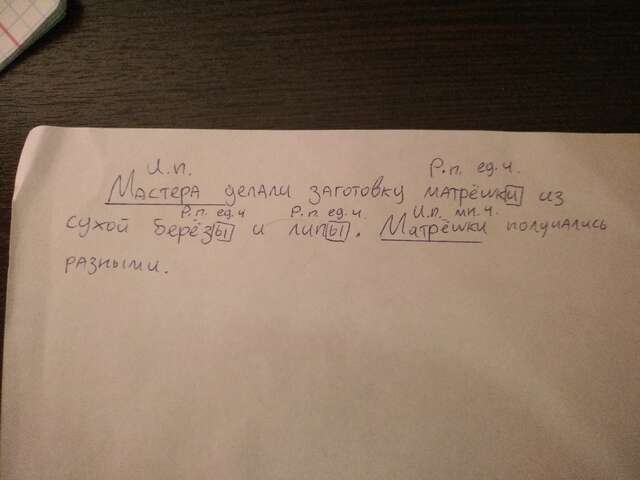 И.п. Р.п. ед.ч.
Мастера делали заготовку матрёшки из
Р.п. ед.ч Р.п. ед.ч. И.п. мн.ч.
сухой берёзы и липы. Матрёшки получались
разными.